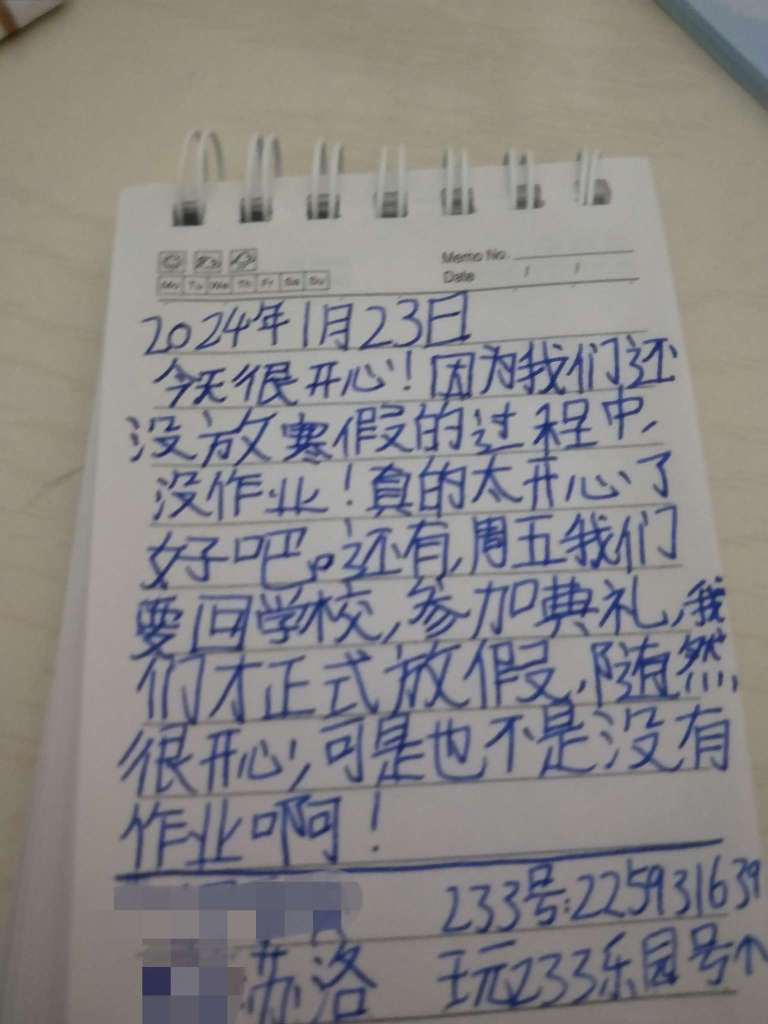 Memo No.
Mo Tu We Th Fr Sa Su
Date / /
2024年1月23日
今天很开心!因为我们还
没放寒假的过程中,
没作业!真的太开心了
好吧。还有,周五我们
要回学校,参加典礼,我
们才正式放假,随然,
很开心,可是也不是没有
作业啊!
233号:225931639
苏洛 玩233乐园号↑